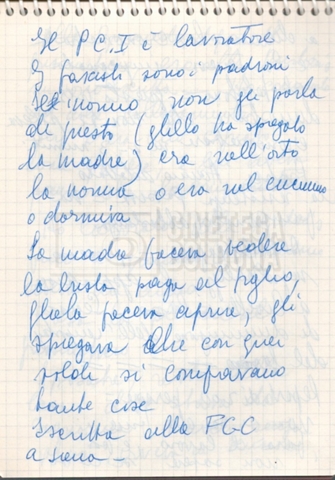 Il P.C.I è lavoratore
I fascisti sono i padroni
Il nonno non gli parla
di questo (gliello ha spiegato
la madre) era nell'orto
la nonna o era nel cucinino
o dormiva
La madre faceva vedere
la busta paga al figlio,
gliela faceva aprire, gli
spiegava che con quei
soldi si compravano
tante cose
Iscritta alla FGC
a Siena –
CINETECA
BOLOGNA